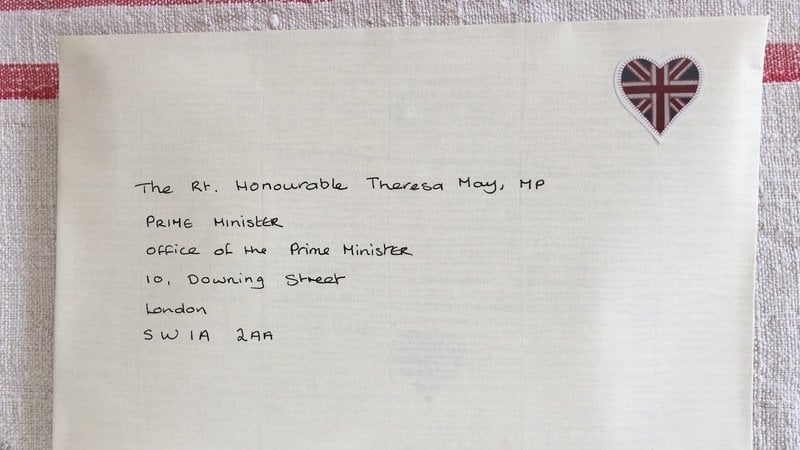 The Rt. Honourable Theresa May, MP
PRIME MINISTER
Office of the Prime MINISTER
10, Downing Street
London
SW1A 2AA